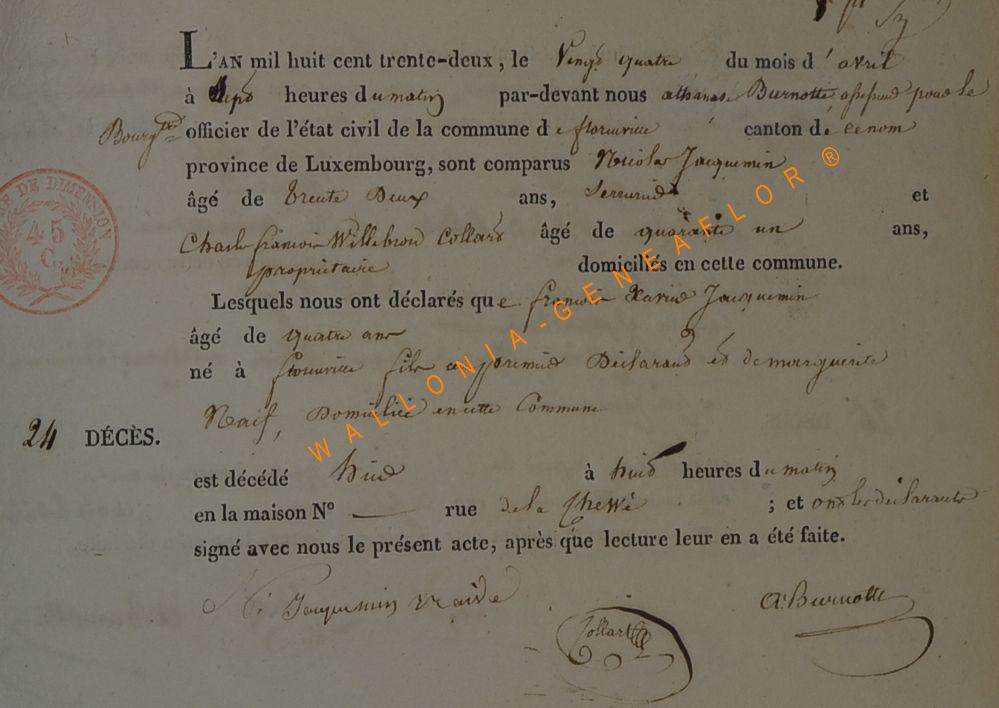 L'AN mil huit cent trente-deux, le Vingt quatre du mois d'avril
à Sept heures du matin par-devant nous athanas Burnotte assesseur pour le
Bourgtre officier de l'état civil de la commune de florenville canton de
province de Luxembourg, sont comparus Nicolas Jacquemin
âgé de trente Deux ans, Serrurier et
Charle françois Willebrou Collard âgé de quarante un ans,
propriétaire domiciliés en cette commune.
Lesquels nous ont déclarés que françois Xavier Jacquemin
âgé de quatre ans
né à florenville fils du premier Déclarand et de marguerite
Naif, Domicilié en cette Commune
24 DÉCÈS.
est décédé hier à huit heures du matin
en la maison N° — rue de la ; et ont les déclarants
signé avec nous le présent acte, après que lecture leur en a été faite.
N: Jacquemin
Collart
A: Burnotte
TIMBRE DE DIMENSION
45
C.
WALLONIA-GENEAFLOR ®